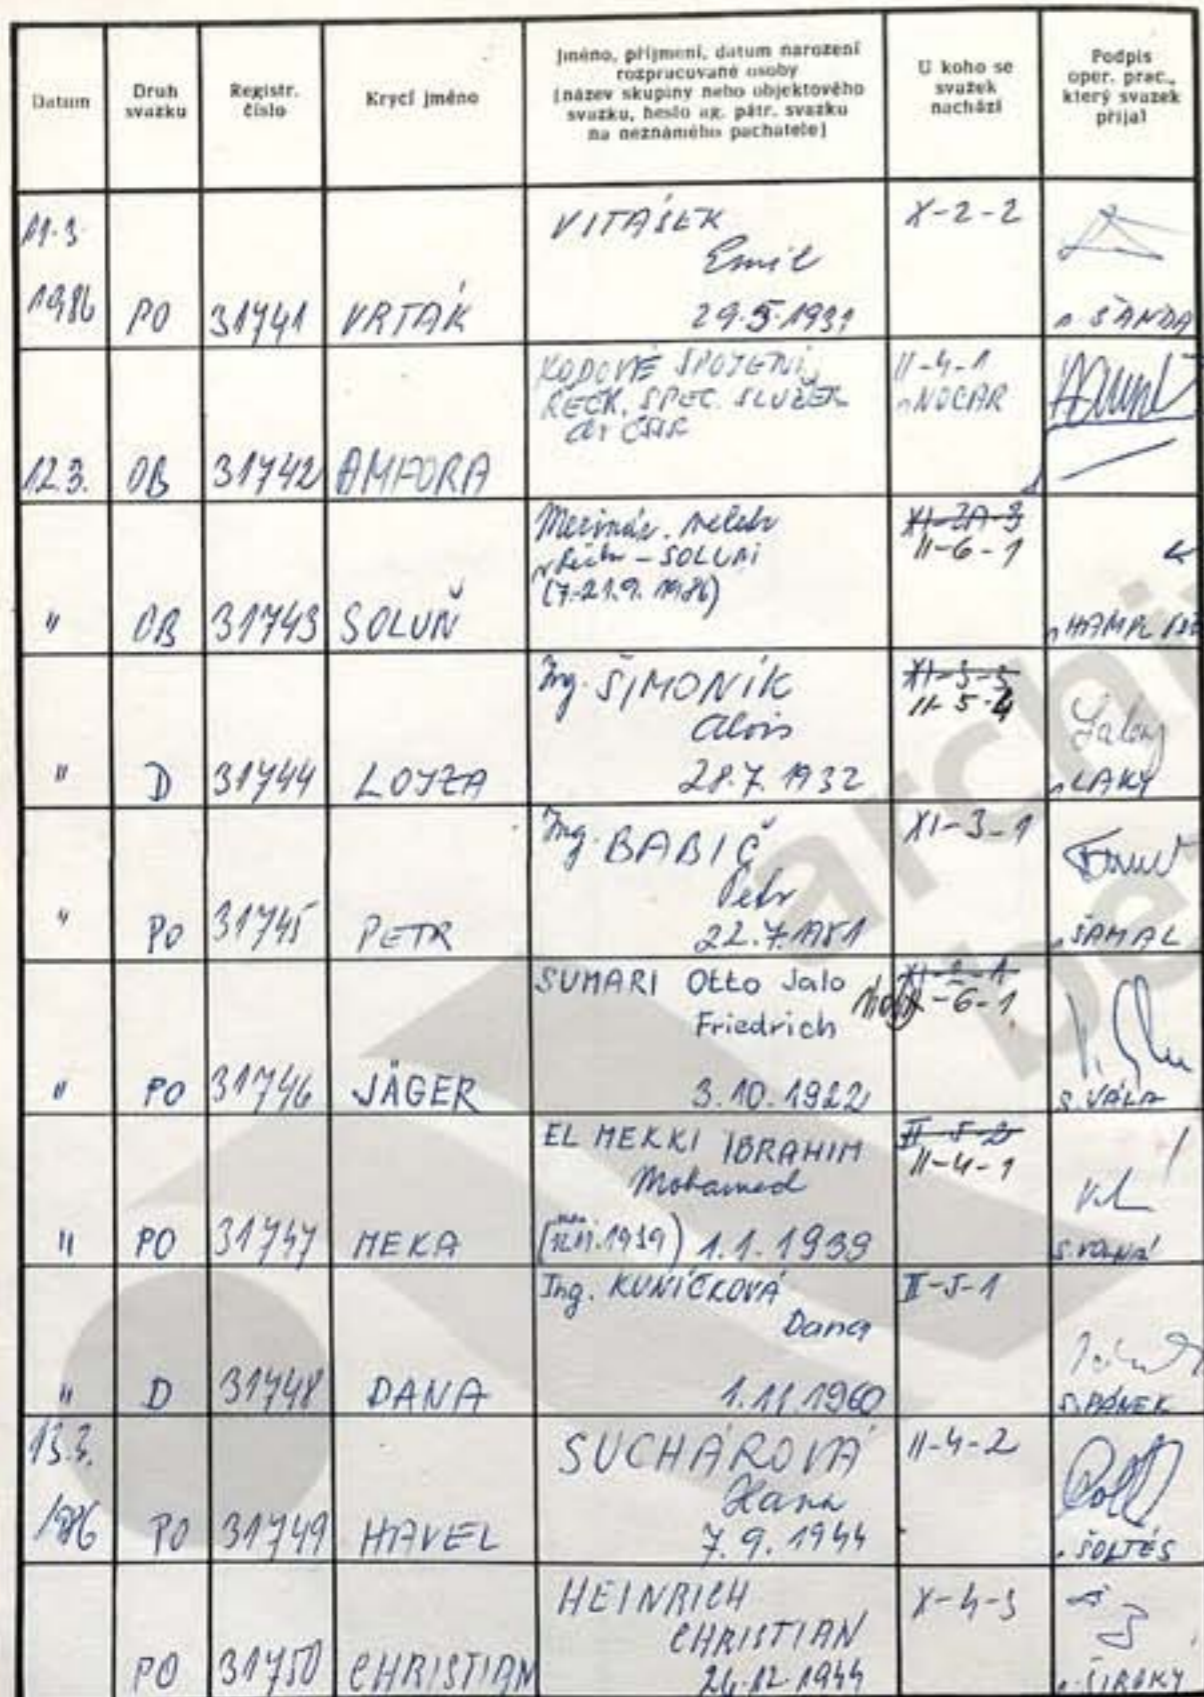 Datum
Druh
svazku
Registr.
číslo
Krycí jméno
Jméno, příjmení, datum narození
rozpracované osoby
(název skupiny nebo objektového
svazku, heslo ag. pátr. svazku
na neznámého pachatele)
U koho se
svazek
nachází
Podpis
oper. prac.,
který svazek
přijal
11.3.
1986 PO 31741 VRTÁK
VITÁSEK
Emil
29.5.1931
X-2-2
ŠANDA
12.3. OB 31742 AMFORA
KODOVÉ SPOJENÍ
ŘECK. SPEC. SLUŽEB
II-4-1
NOCAR
" OB 31743 SOLUŇ
Mezinár. veletr
- SOLUNI
(7.-21.9. 1986)
II-6-1
HAMPL
" D 31744 LOJZA
Ing. ŠIMONÍK
Alois
28.7.1932
XI-3-3
II-5-4
LAKY
" PO 31745 PETR
Ing. BABIČ
Petr
22.7.1951
XI-3-1
ŠAMAL
" PO 31746 JÄGER
SUMARI Otto Jalo
Friedrich
3.10.1922
-6-1
S. VÁLA
" PO 31747 MEKA
EL MEKKI IBRAHIM
Mohamed
1.1.1939
II-5-2
II-4-1
S. VOLNÁ
" D 31748 DANA
Ing. KUNÍČKOVÁ
Dana
1.11.1960
II-5-1
S. PÁNEK
13.3.
1986 PO 31749 HAVEL
SUCHÁROVÁ
Hana
7.9.1944
II-4-2
ŠOLTÉS
PO 31750 CHRISTIAN
HEINRICH
CHRISTIAN
24.12.1944
X-4-3
ŠIROKÝ